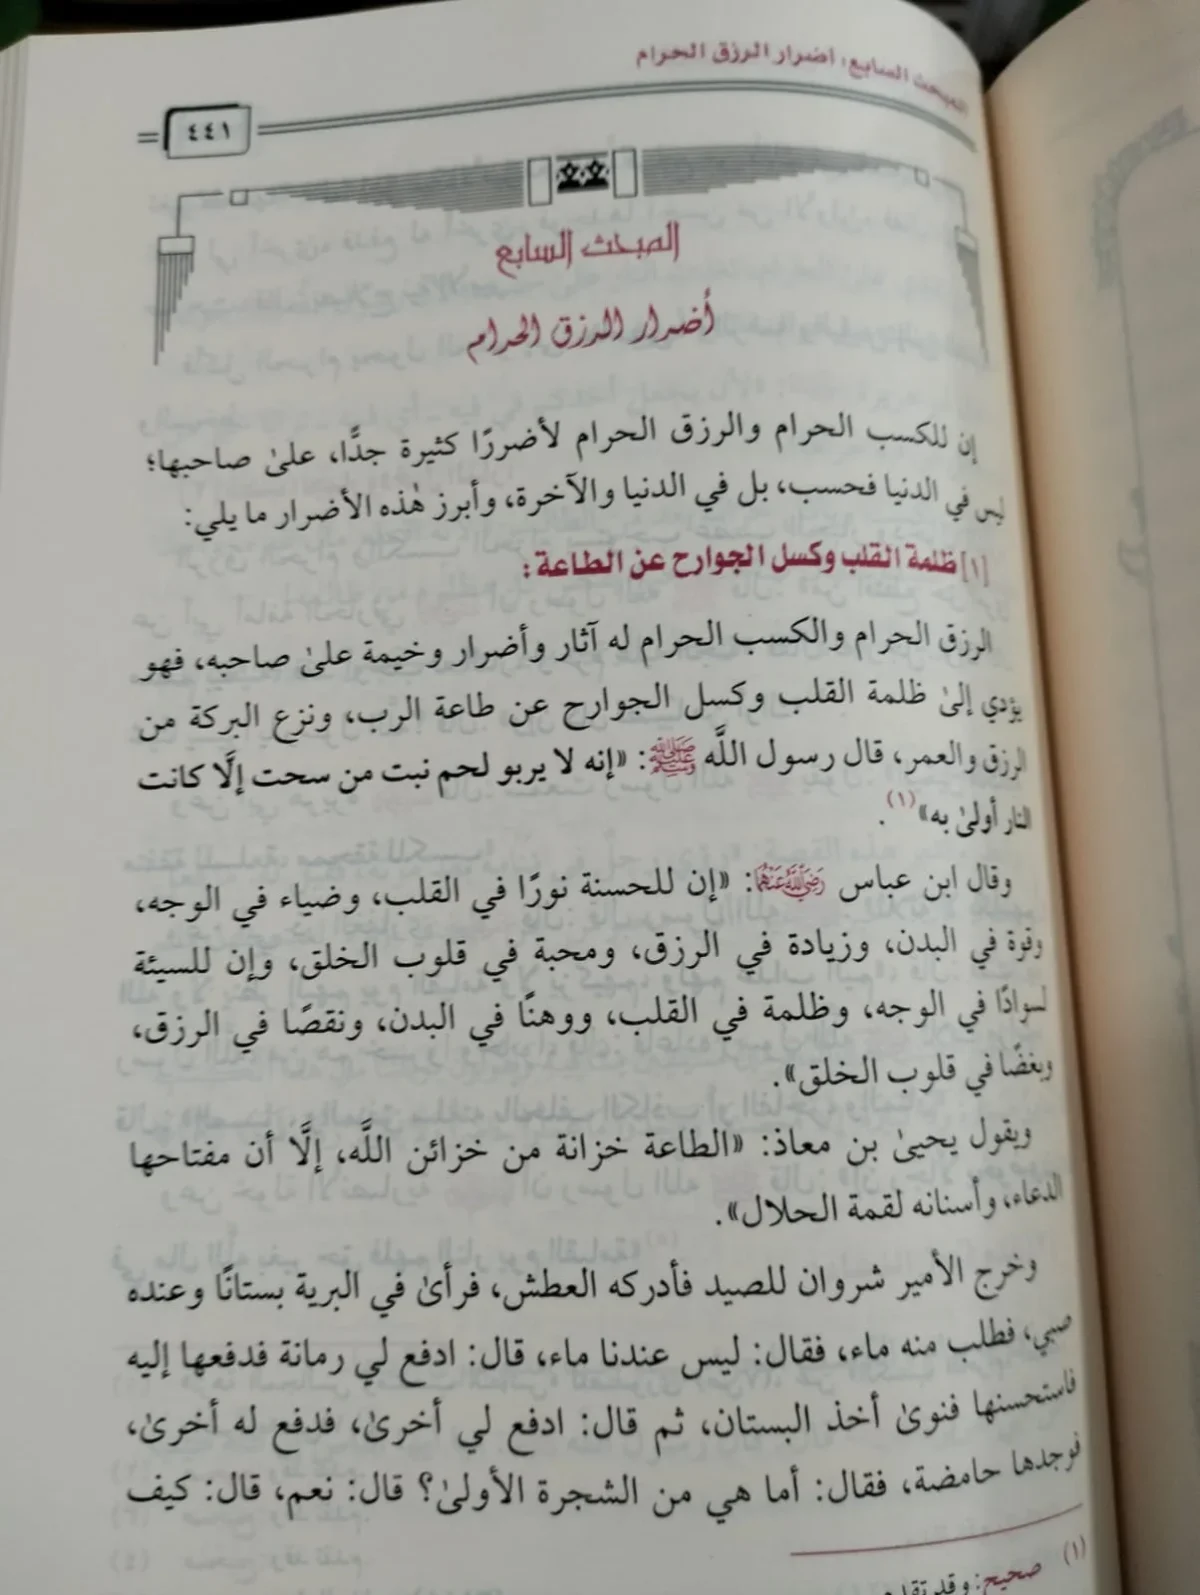 المبحث السابع: أضرار الرزق الحرام
٤٤١
المبحث السابع
أضرار الرزق الحرام
إن للكسب الحرام والرزق الحرام لأضررًا كثيرة جدًّا، علىٰ صاحبها؛
ليس في الدنيا فحسب، بل في الدنيا والآخرة، وأبرز هٰذه الأضرار ما يلي:
[١] ظلمة القلب وكسل الجوارح عن الطاعة:
الرزق الحرام والكسب الحرام له آثار وأضرار وخيمة علىٰ صاحبه، فهو
يؤدي إلىٰ ظلمة القلب وكسل الجوارح عن طاعة الرب، ونزع البركة من
الرزق والعمر، قال رسول اللَّه ﷺ: «إنه لا يربو لحم نبت من سحت إلَّا كانت
النار أولىٰ به»(١).
وقال ابن عباس رَضِيَ اللَّهُ عَنْهُمَا: «إن للحسنة نورًا في القلب، وضياء في الوجه،
وقوة في البدن، وزيادة في الرزق، ومحبة في قلوب الخلق، وإن للسيئة
لسوادًا في الوجه، وظلمة في القلب، ووهنًا في البدن، ونقصًا في الرزق،
وبغضًا في قلوب الخلق».
ويقول يحيىٰ بن معاذ: «الطاعة خزانة من خزائن اللَّه، إلَّا أن مفتاحها
الدعاء، وأسنانه لقمة الحلال».
وخرج الأمير شروان للصيد فأدركه العطش، فرأىٰ في البرية بستانًا وعنده
صبي، فطلب منه ماء، فقال: ليس عندنا ماء، قال: ادفع لي رمانة فدفعها إليه
فاستحسنها فنوىٰ أخذ البستان، ثم قال: ادفع لي أخرىٰ، فدفع له أخرىٰ،
فوجدها حامضة، فقال: أما هي من الشجرة الأولىٰ؟ قال: نعم، قال: كيف
(١) صحيح: وقد تقدم